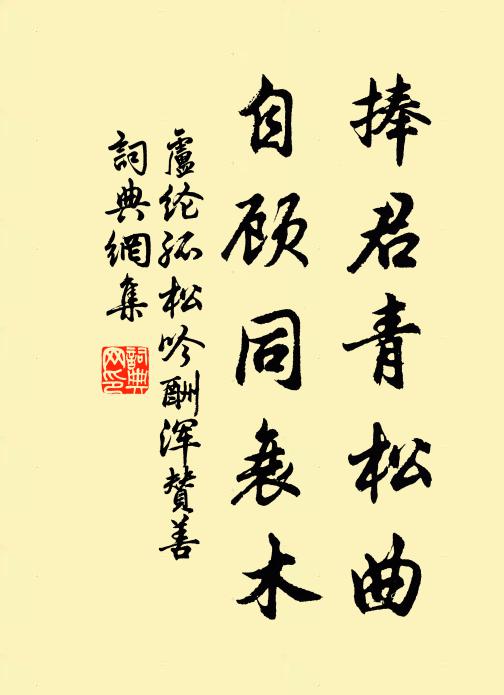 捧君青松曲
自顾同衰木
盧纶孤松吟酬浑贊善
詞典網集
詞典
网印